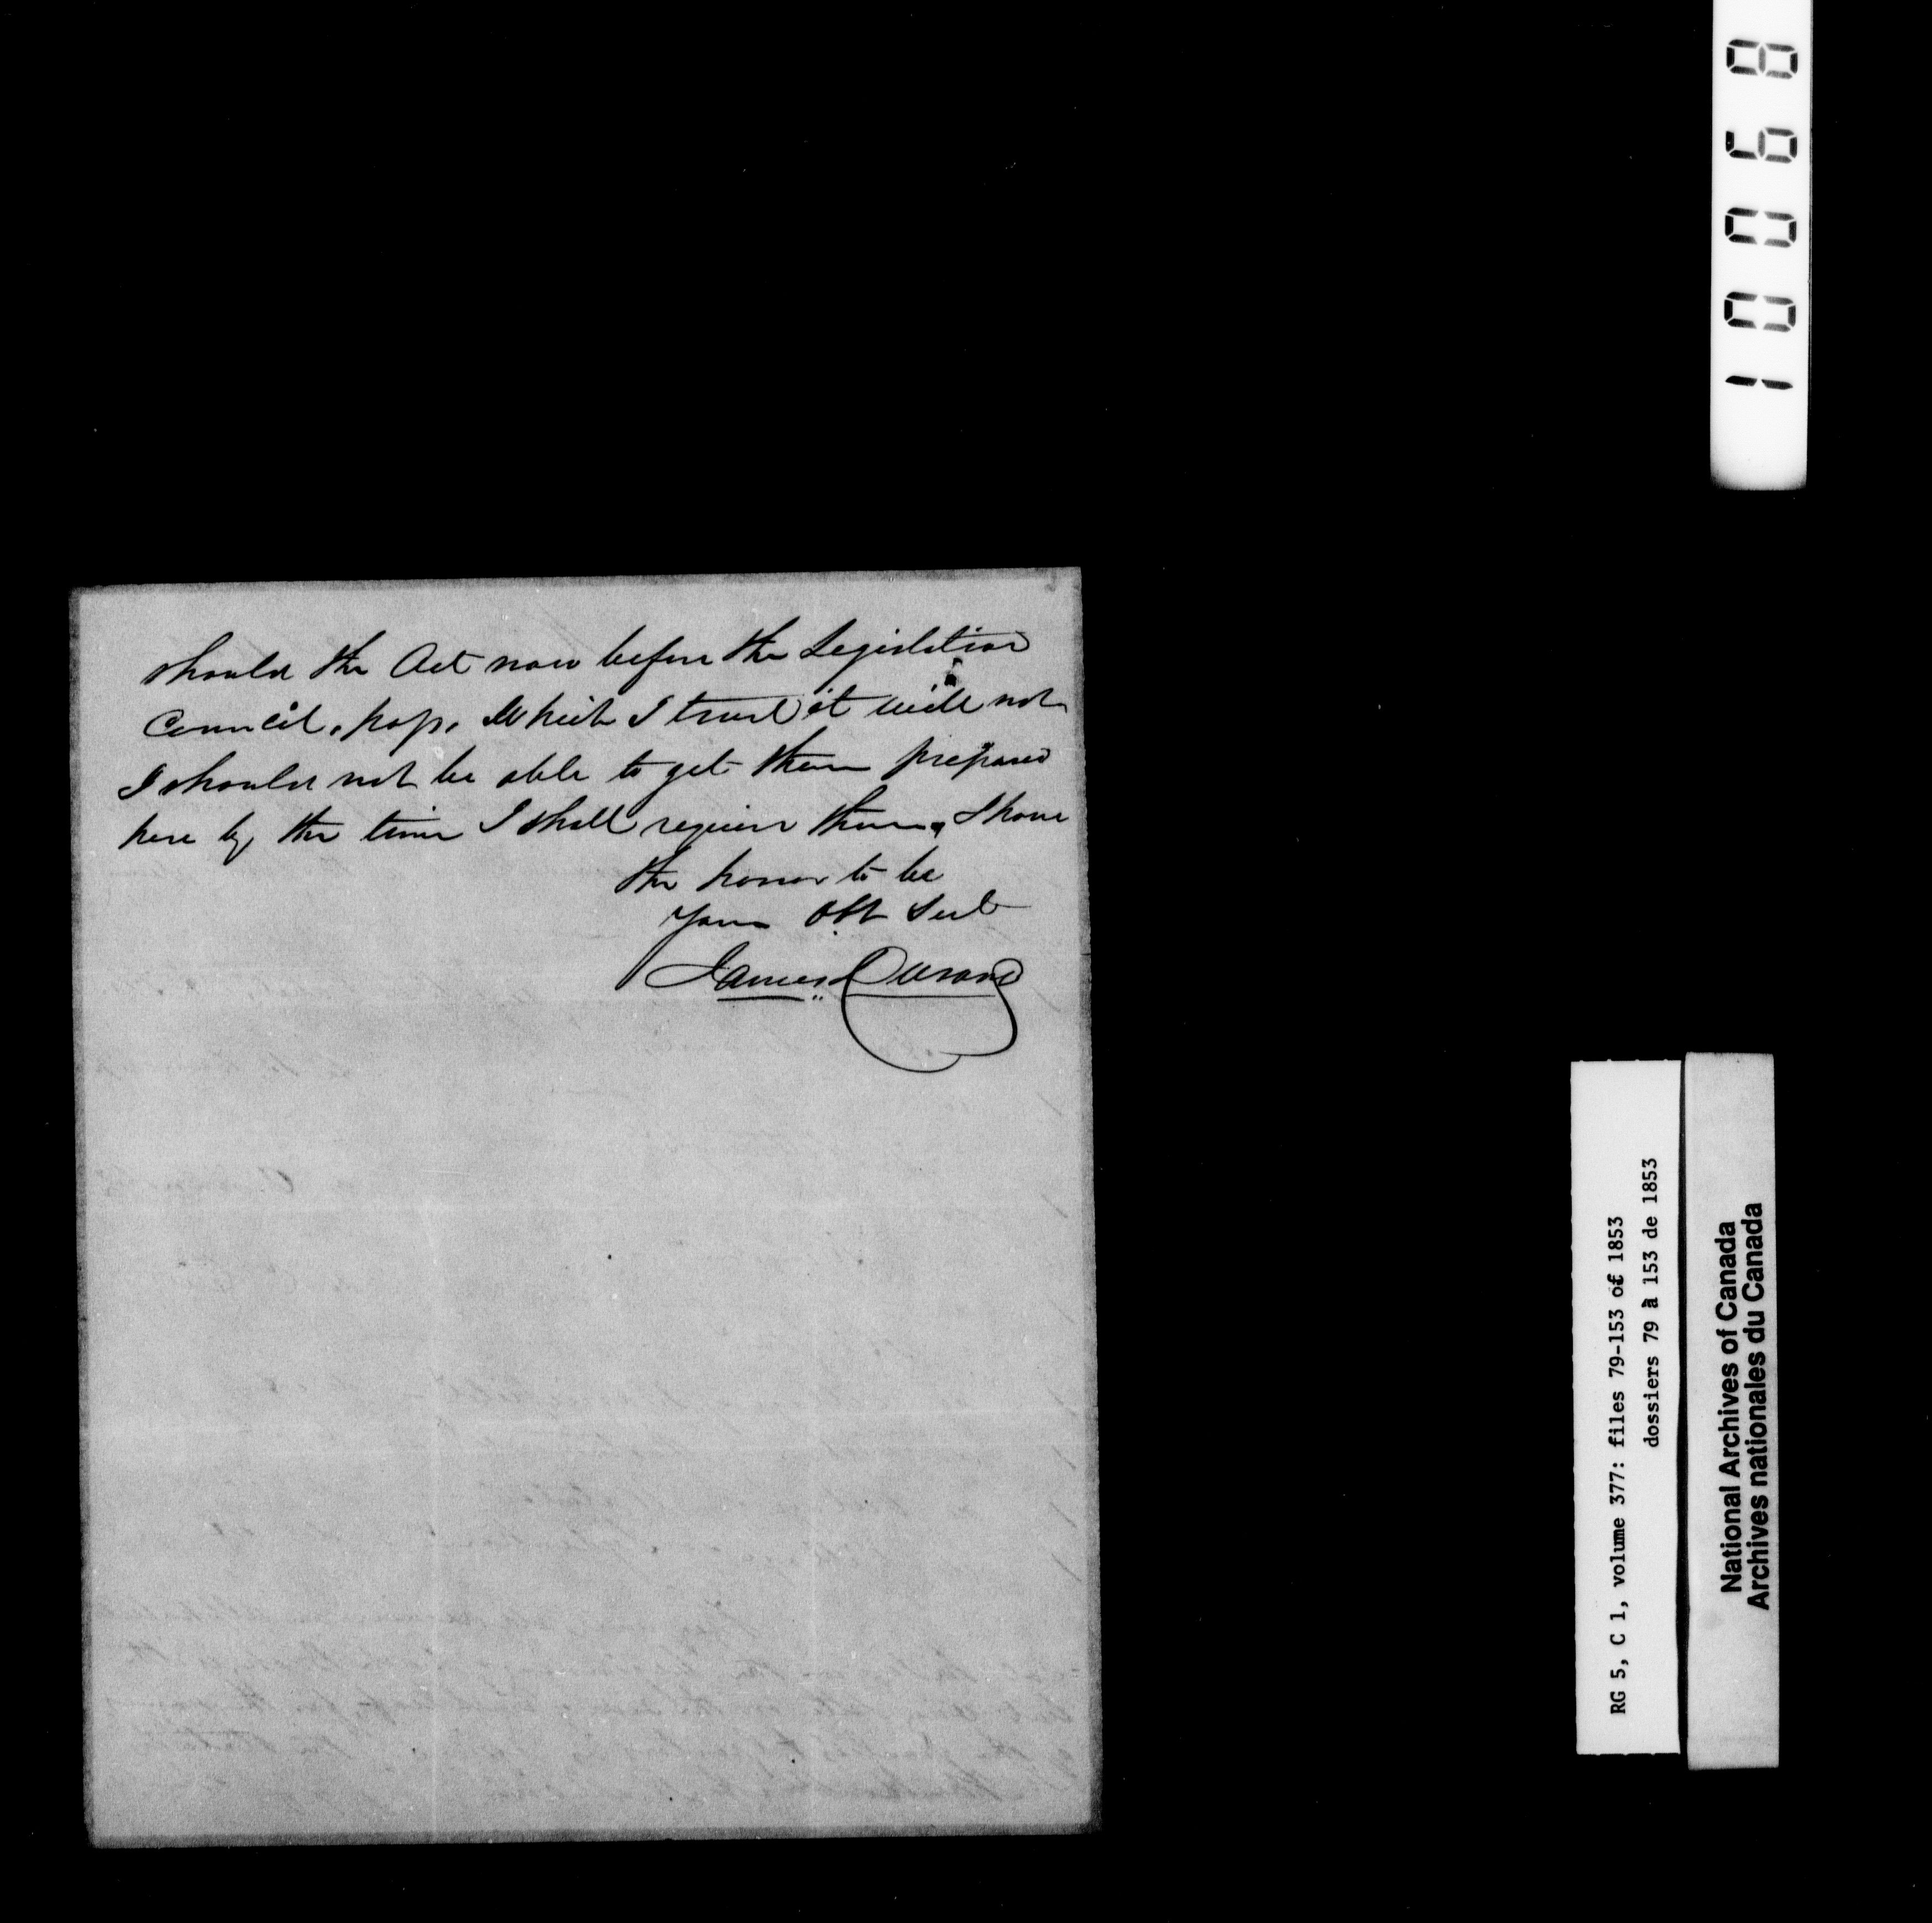 should the Act now before the Legislative
Council, pass, Which I trust it will not
I should not be able to get them prepared
here by the time I shall require them, I have
the honor to be
Your Obt Sert
James Durand
10068
RG 5, C 1, volume 377: files 79-153 of 1853
dossiers 79 à 153 de 1853
National Archives of Canada
Archives nationales du Canada